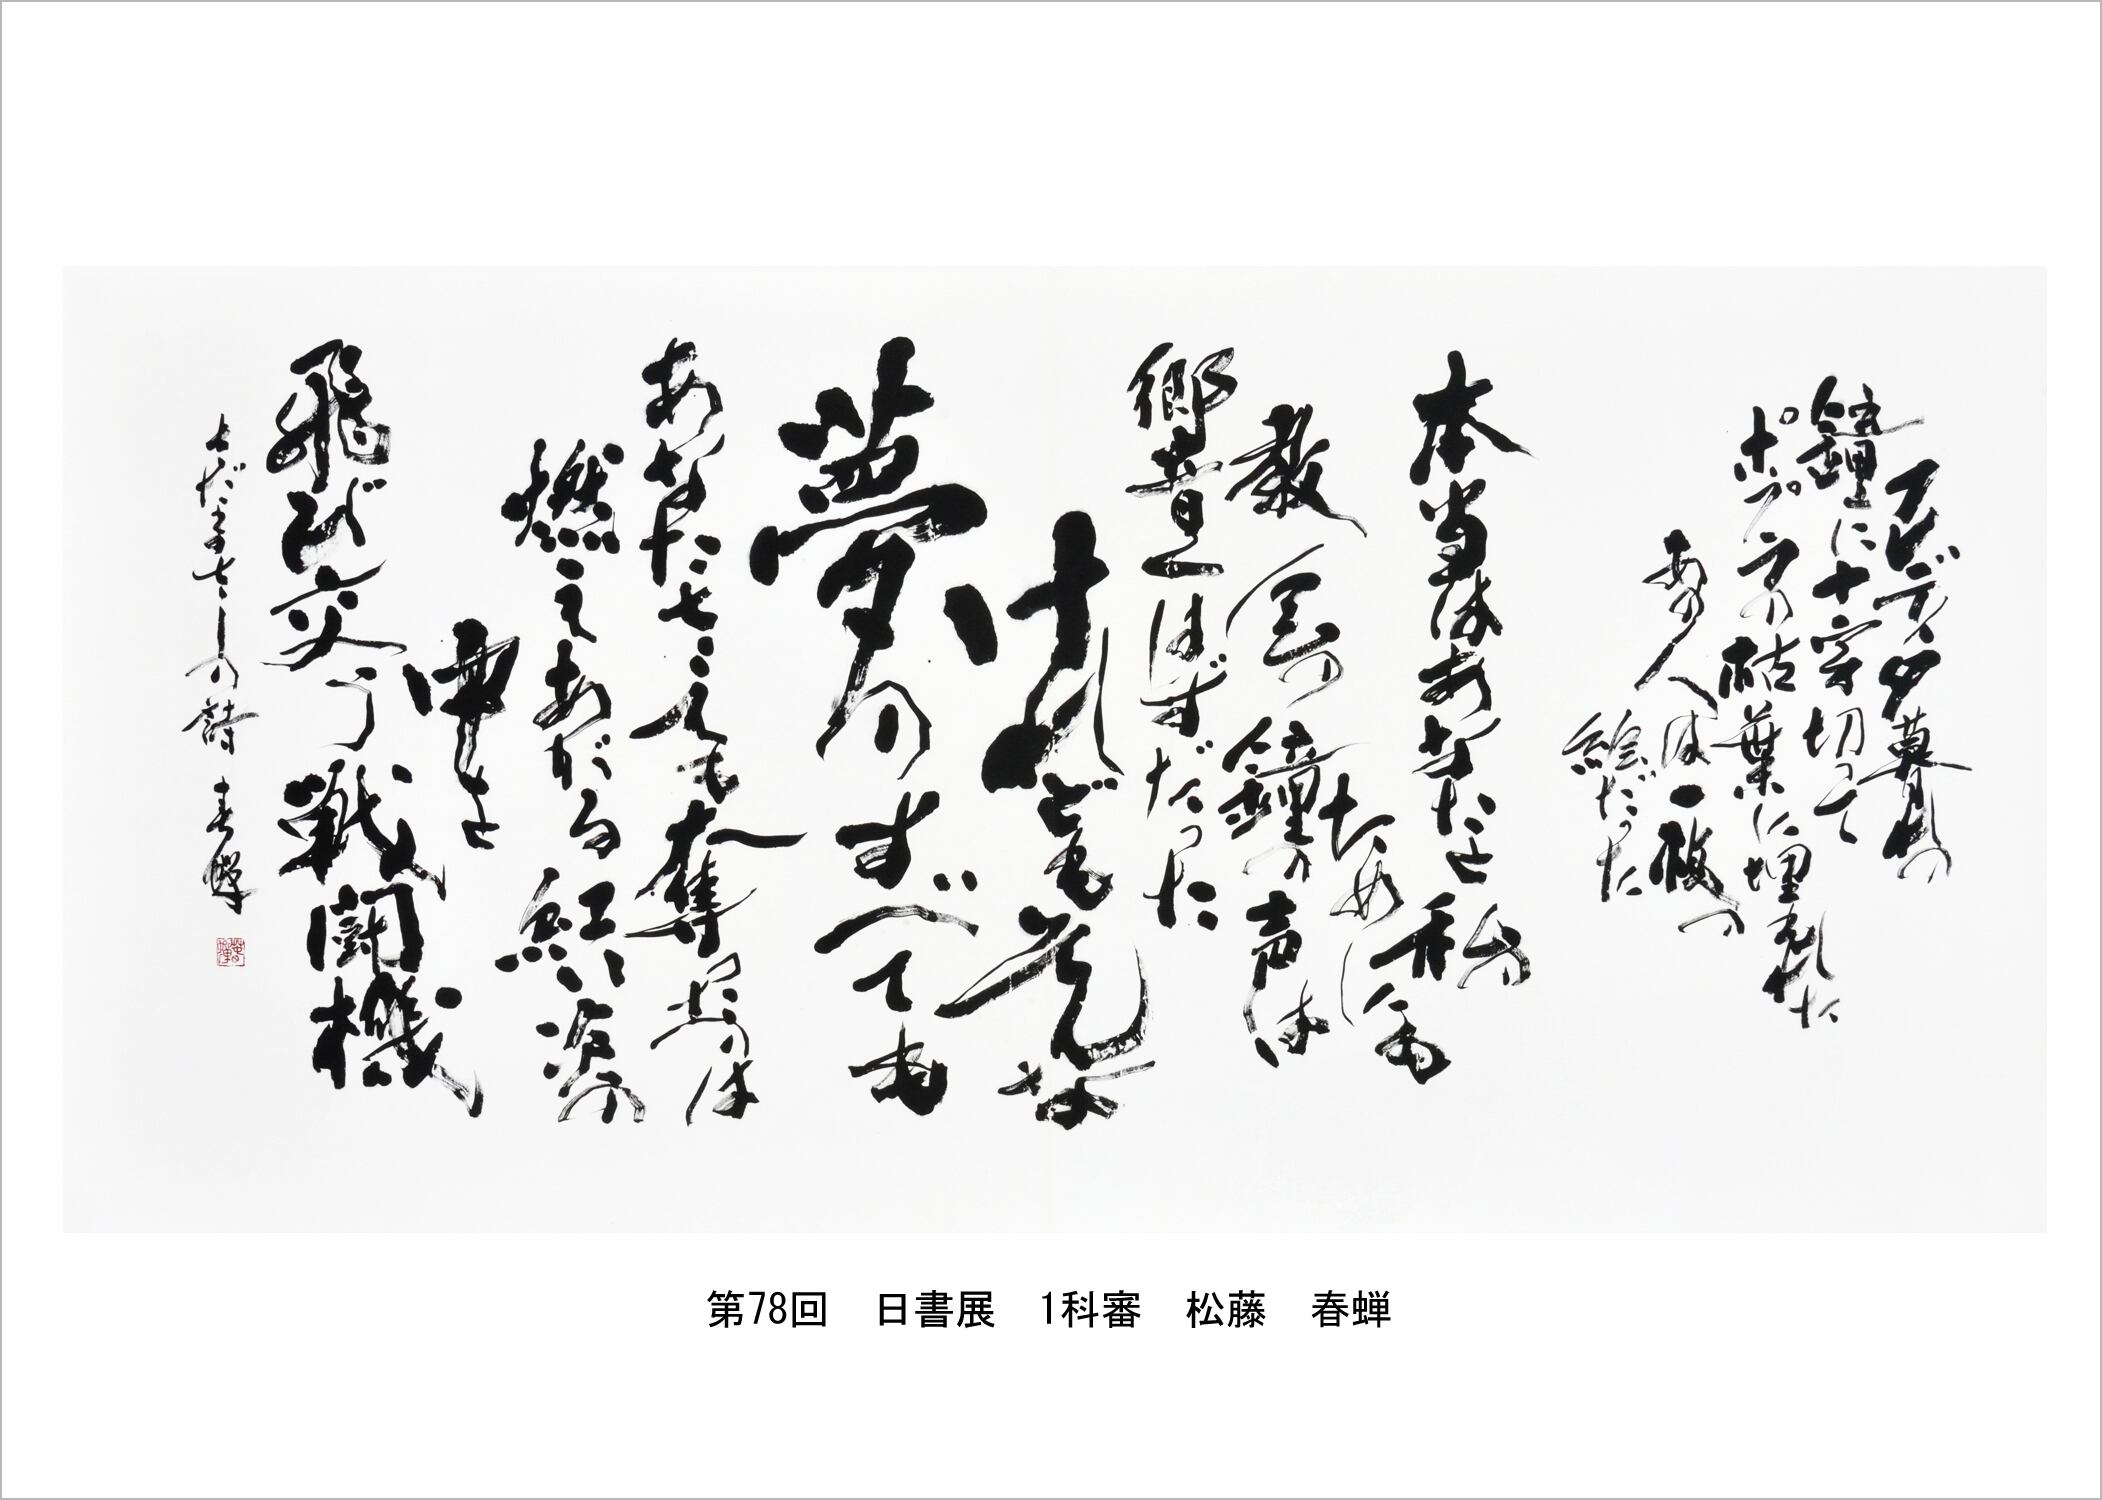 フレディ夕暮れの
鐘に十字切って
ポプラの枯葉に埋もれた
あの人は一枚の
絵だった
本当はあなたと私の
ためにも
教会の鐘の声は
響くはずだった
けれどもそんな
夢のすべても
あなたさえも奪ったのは
燃えあがる紅い炎の
中を
飛び交う戦闘機
さだまさしの詩 春蝉
第78回　日書展　1科審　松藤　春蝉